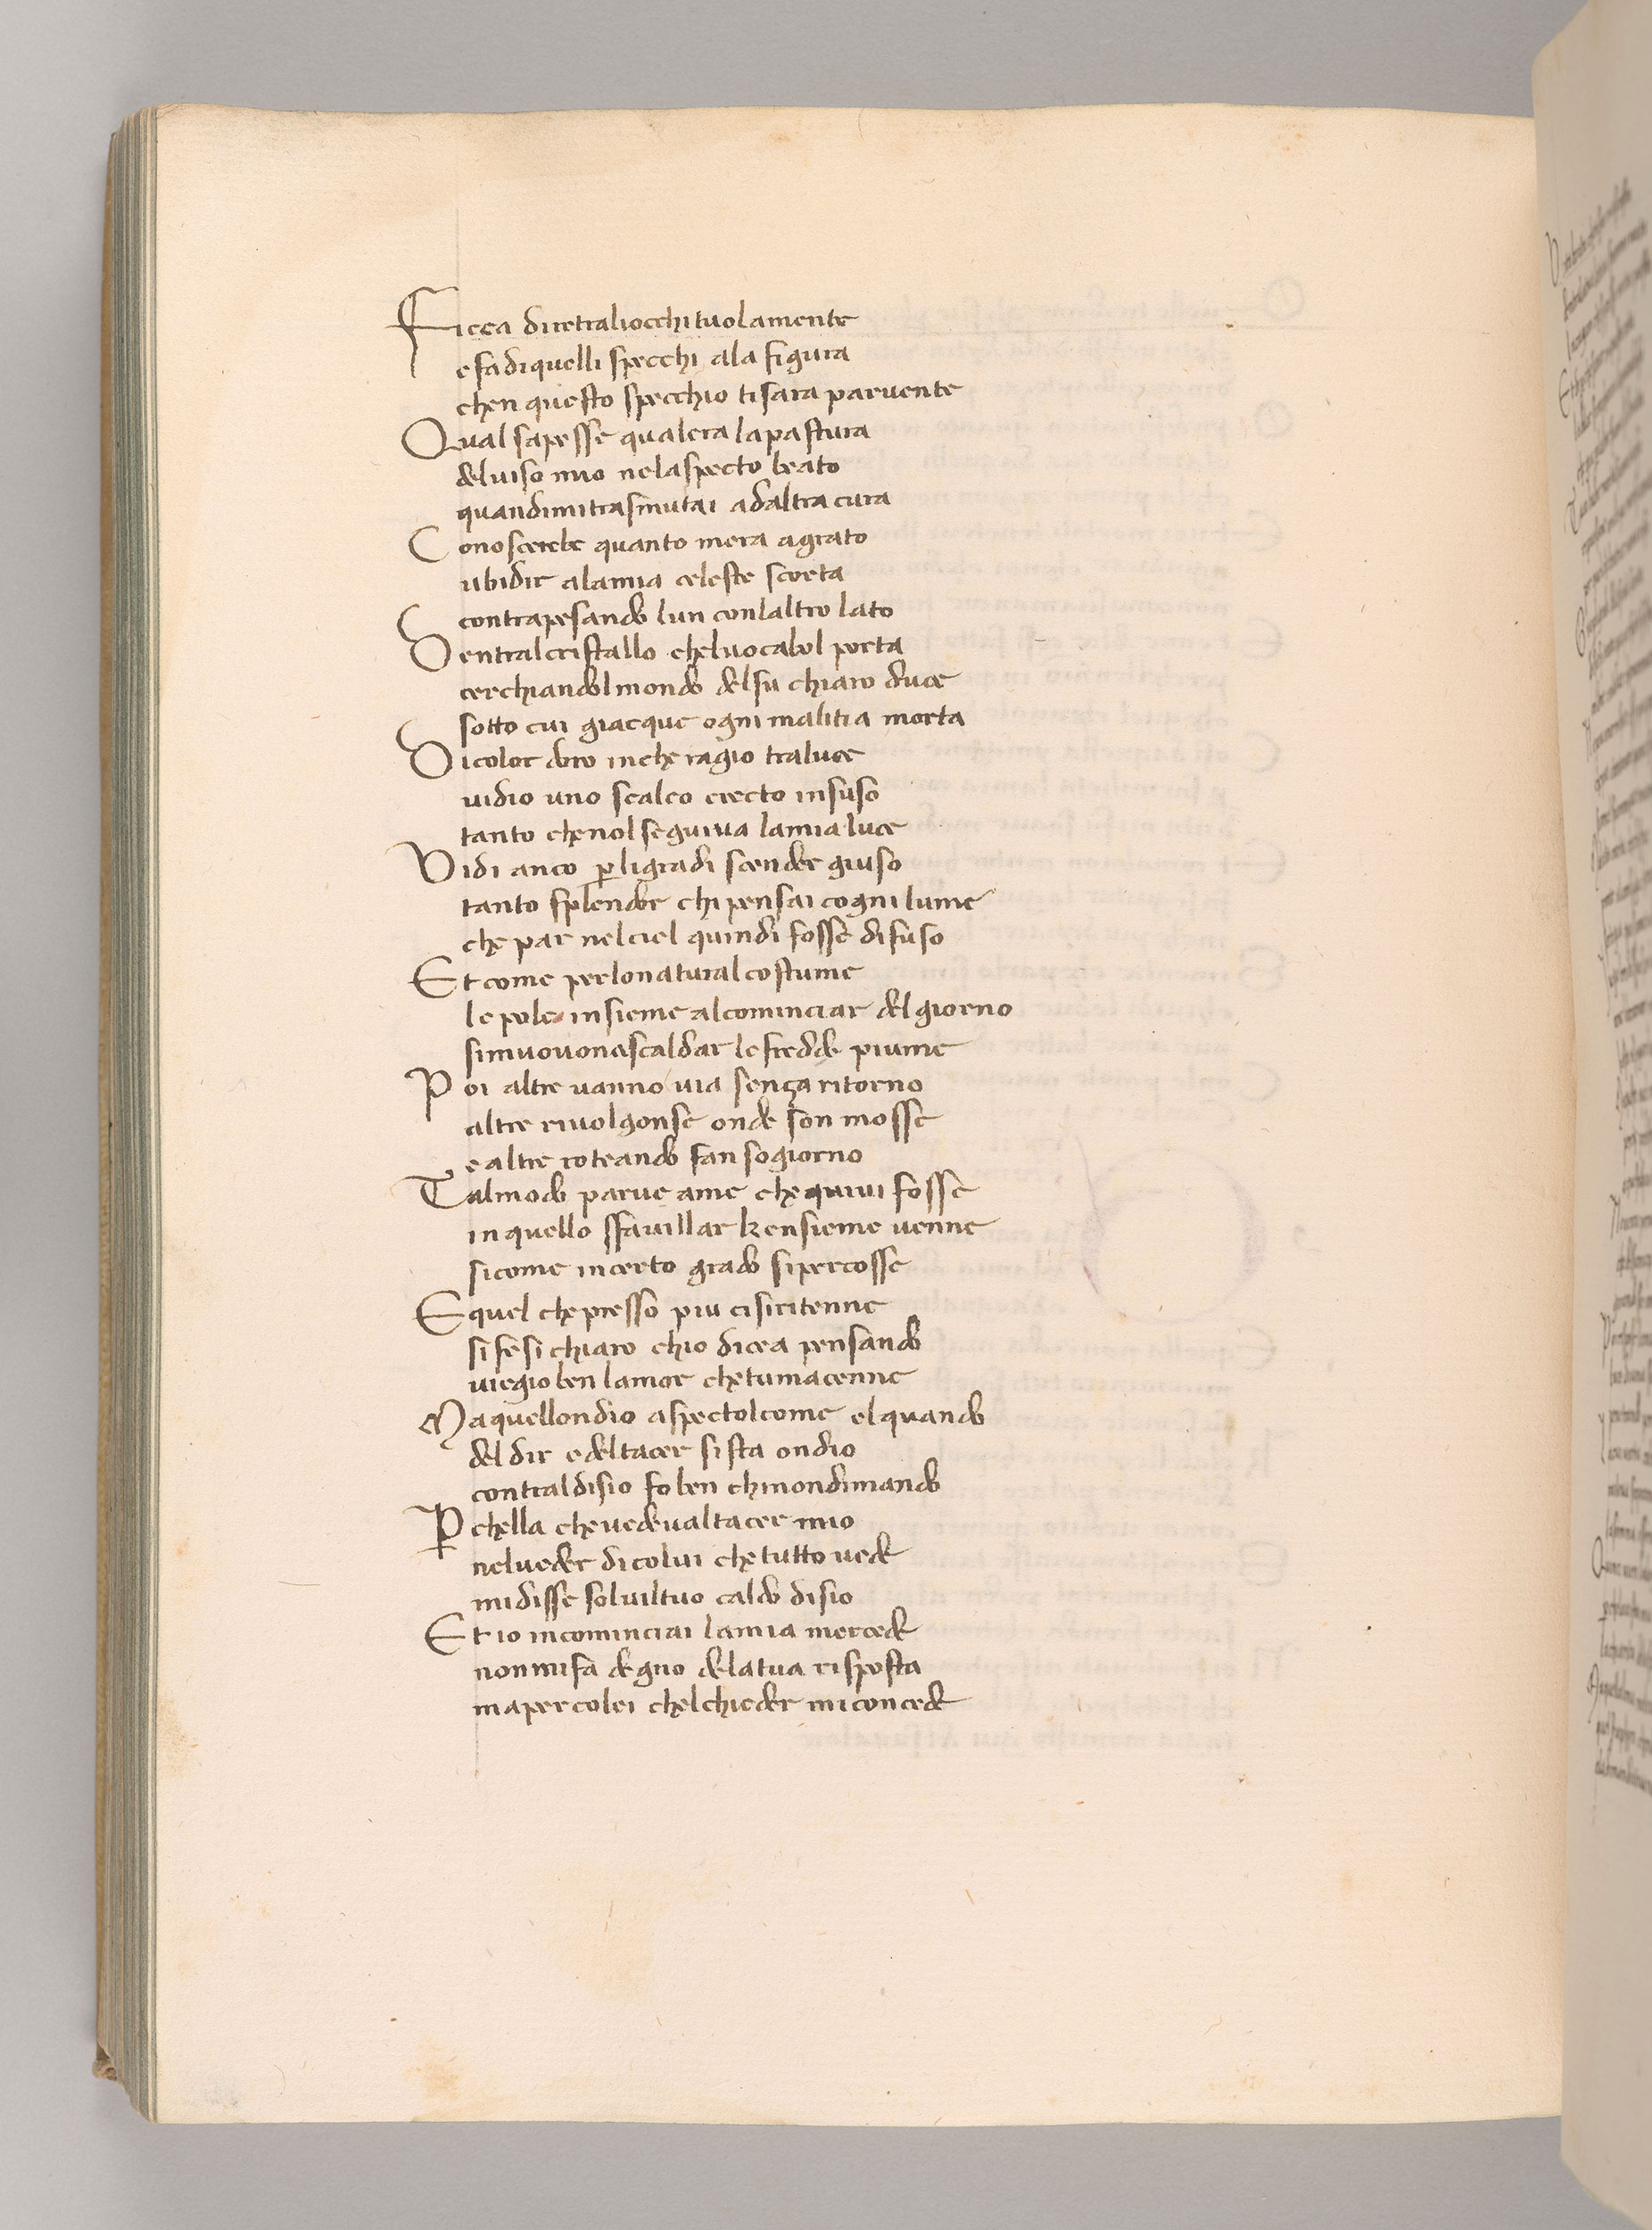 Ficca diretraliocchituolamente
efadiquelli specchi ala figura
chen questo specchio tisara paruente
Qual sapesse qualera lapastura
deluiso mio nelaspecto beato
quandimitrasmutai adaltra cura
Conoscerebe quanto mera agrato
ubidir alamia celeste scorta
contrapesando lun conlaltro lato
Dentralcristallo cheluocabol porta
cerchiandolmondo delsu chiaro duce
sotto cui giacque ogni malitia morta
Dicolor doro inche ragio traluce
uidio uno scaleo erecto insuso
tanto chenol seguiua lamia luce
Vidi anco ꝑligradi scender giuso
tanto splender chi pensai cogni lume
che par nelciel quindi fosse difuso
Et come perlonatural costume
le pole insieme alcominciar delgiorno
simuouonascaldar lefredde piume
Poi altre uanno uia sença ritorno
altre riuolgonse onde son mosse
e altre roteando fan sogiorno
Talmodo parue ame che quiui fosse
in quello sfauillar kensieme uenne
sicome incerto grado sipercosse
E quel chepresso piu cisiritenne
sifesi chiaro chio dicea pensando
uiegio ben lamor chetumacenne
Maquellondio aspectolcome elquando
del dir edeltacer sista ondio
contraldisio fo ben chinondimando
Ꝑ chella cheuedeualtacer mio
nelueder dicolui che tutto uede
midisse soluiltuo caldo disio
Et io incominciai lamia mercede
nonmifa degno delatua risposta
mapercolei chelchieder miconcede